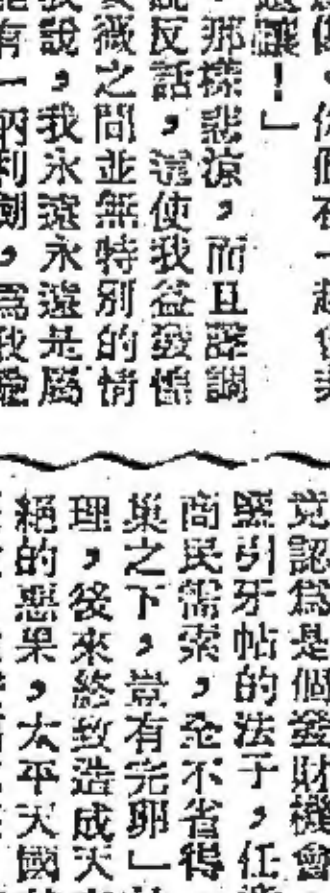 讓!」
那樣悲涼,而且聲調
反話,這使我益發
薇之間並無特別的情
說,我永遠永遠是屬
有一柄利劍,為我
竟認為是個發財機會
鹽引牙帖的法子,任
商民需索,全不省得
巢之下,豈有完卵」
理,後來終致造成天
絕的惡果,太平天國